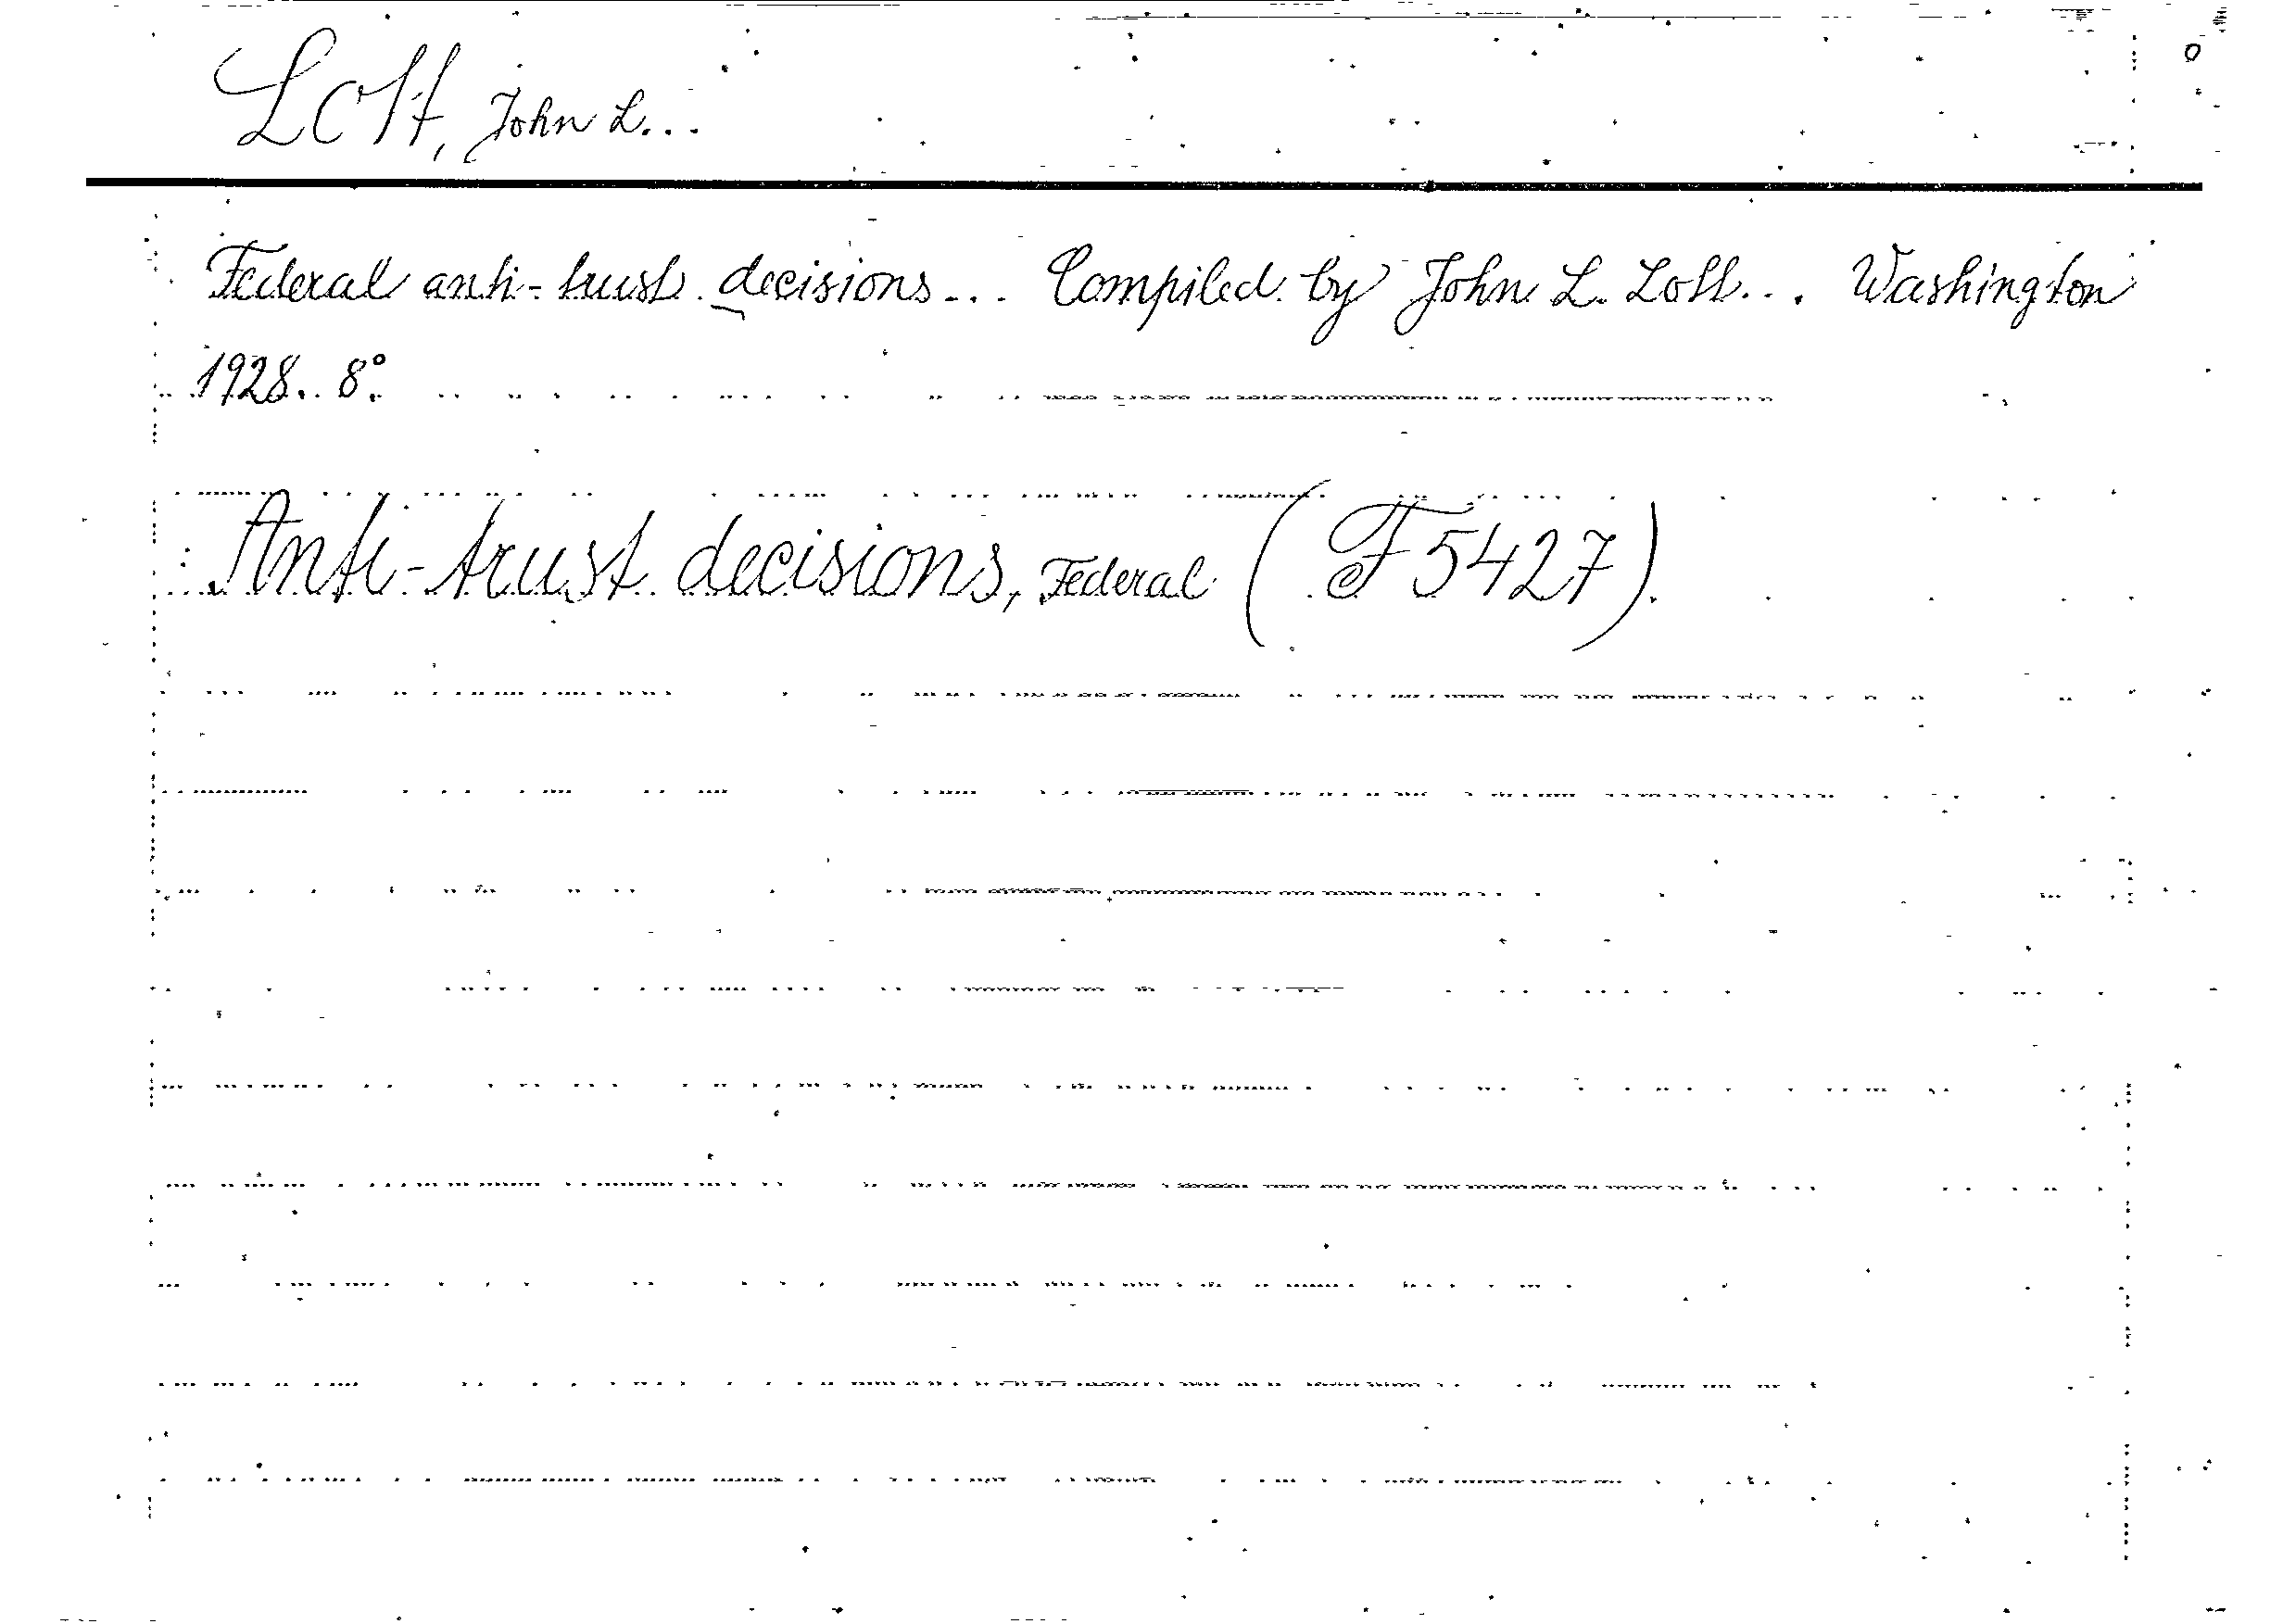 Lott, John L...
Federal anti-trust decisions... Compiled by John L. Lott... Washington
1928. 8°.
Anti-trust decisions, Federal (F 5427).